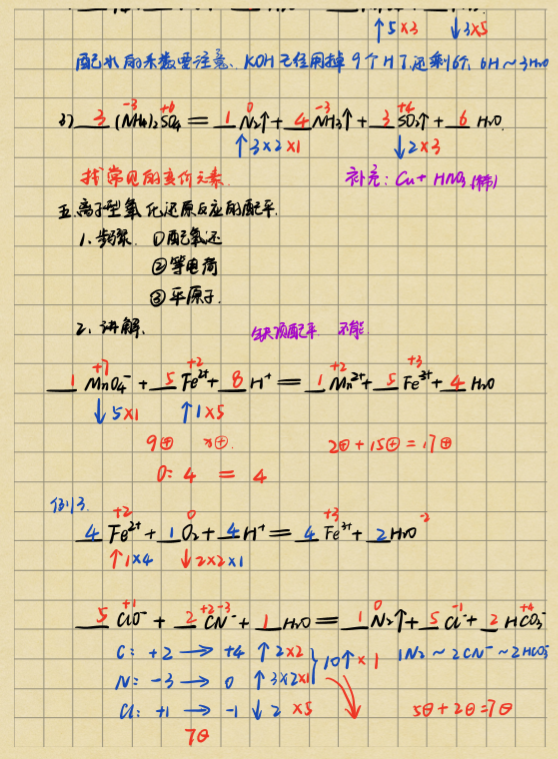 ↑5×3 ↓3×5
配水的系数要注意、KOH已经用掉9个H了,还剩6个, 6H~3H₂O
3) 3 (NH₄)₂SO₄ = 1 N₂↑+ 4 NH₃↑+ 3 SO₂↑+ 6 H₂O
-3 +6 0 -3 +4
↑3×2×1 ↓2×3
找常见的变价元素. 补充: Cu+ HNO₃(稀)
五.离子型氧化还原反应的配平.
1、步骤. ①配氧还
②等电荷
③平原子.
2、讲解、 缺项配平 不能.
+7 +2 +2 +3
1 MnO₄⁻ + 5 Fe²⁺ + 8 H⁺ = 1 Mn²⁺ + 5 Fe³⁺ + 4 H₂O
↓5×1 ↑1×5
9⊕ x⊕. 2⊕ + 15⊕ = 17⊕
O: 4 = 4
例3.
+2 0 +3 -2
4 Fe²⁺ + 1 O₂ + 4 H⁺ = 4 Fe³⁺ + 2 H₂O
↑1×4 ↓2×2×1
+1 +2-3 0 -1 +4
5 ClO⁻ + 2 CN⁻ + 1 H₂O = 1 N₂↑ + 5 Cl⁻ + 2 HCO₃⁻
C: +2 → +4 ↑2×2 } 10↑×1 1N₂ ~ 2CN⁻ ~ 2HCO₃⁻
N: -3 → 0 ↑3×2×1
Cl: +1 → -1 ↓2 ×5 5⊖ + 2⊖ = 7⊖
7⊖